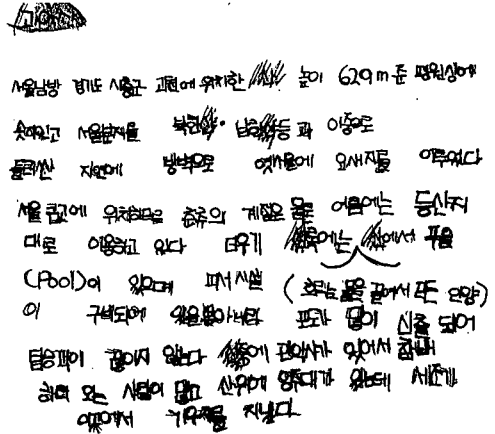 서울남방 경기도 시흥군 과천에 위치한 높이 629m 준 평원상에
솟아있고 서울분지를 북한산· 남한산등 과 이중으로
둘러싼 자연에 방벽으로 옛서울에 요새지를 이루었다
서울 근교에 위치하므로 춘추의 계절은 물론 여름에는 등산지
대로 이용하고 있다 더우기 에서 푸울
(Pool)이 있으며 피서시설 (흐르는 물을 끝에서 모은 안양)
이 구비되어 있을뿐아니라 포도가 많이 신출 되어
탐승객이 끊이지 않는다 중에 관악사가 있어서
하러 오는 사람이 많고 산위에 영주대가 있는데 세조가
이곳에서 기우제를 지냈다